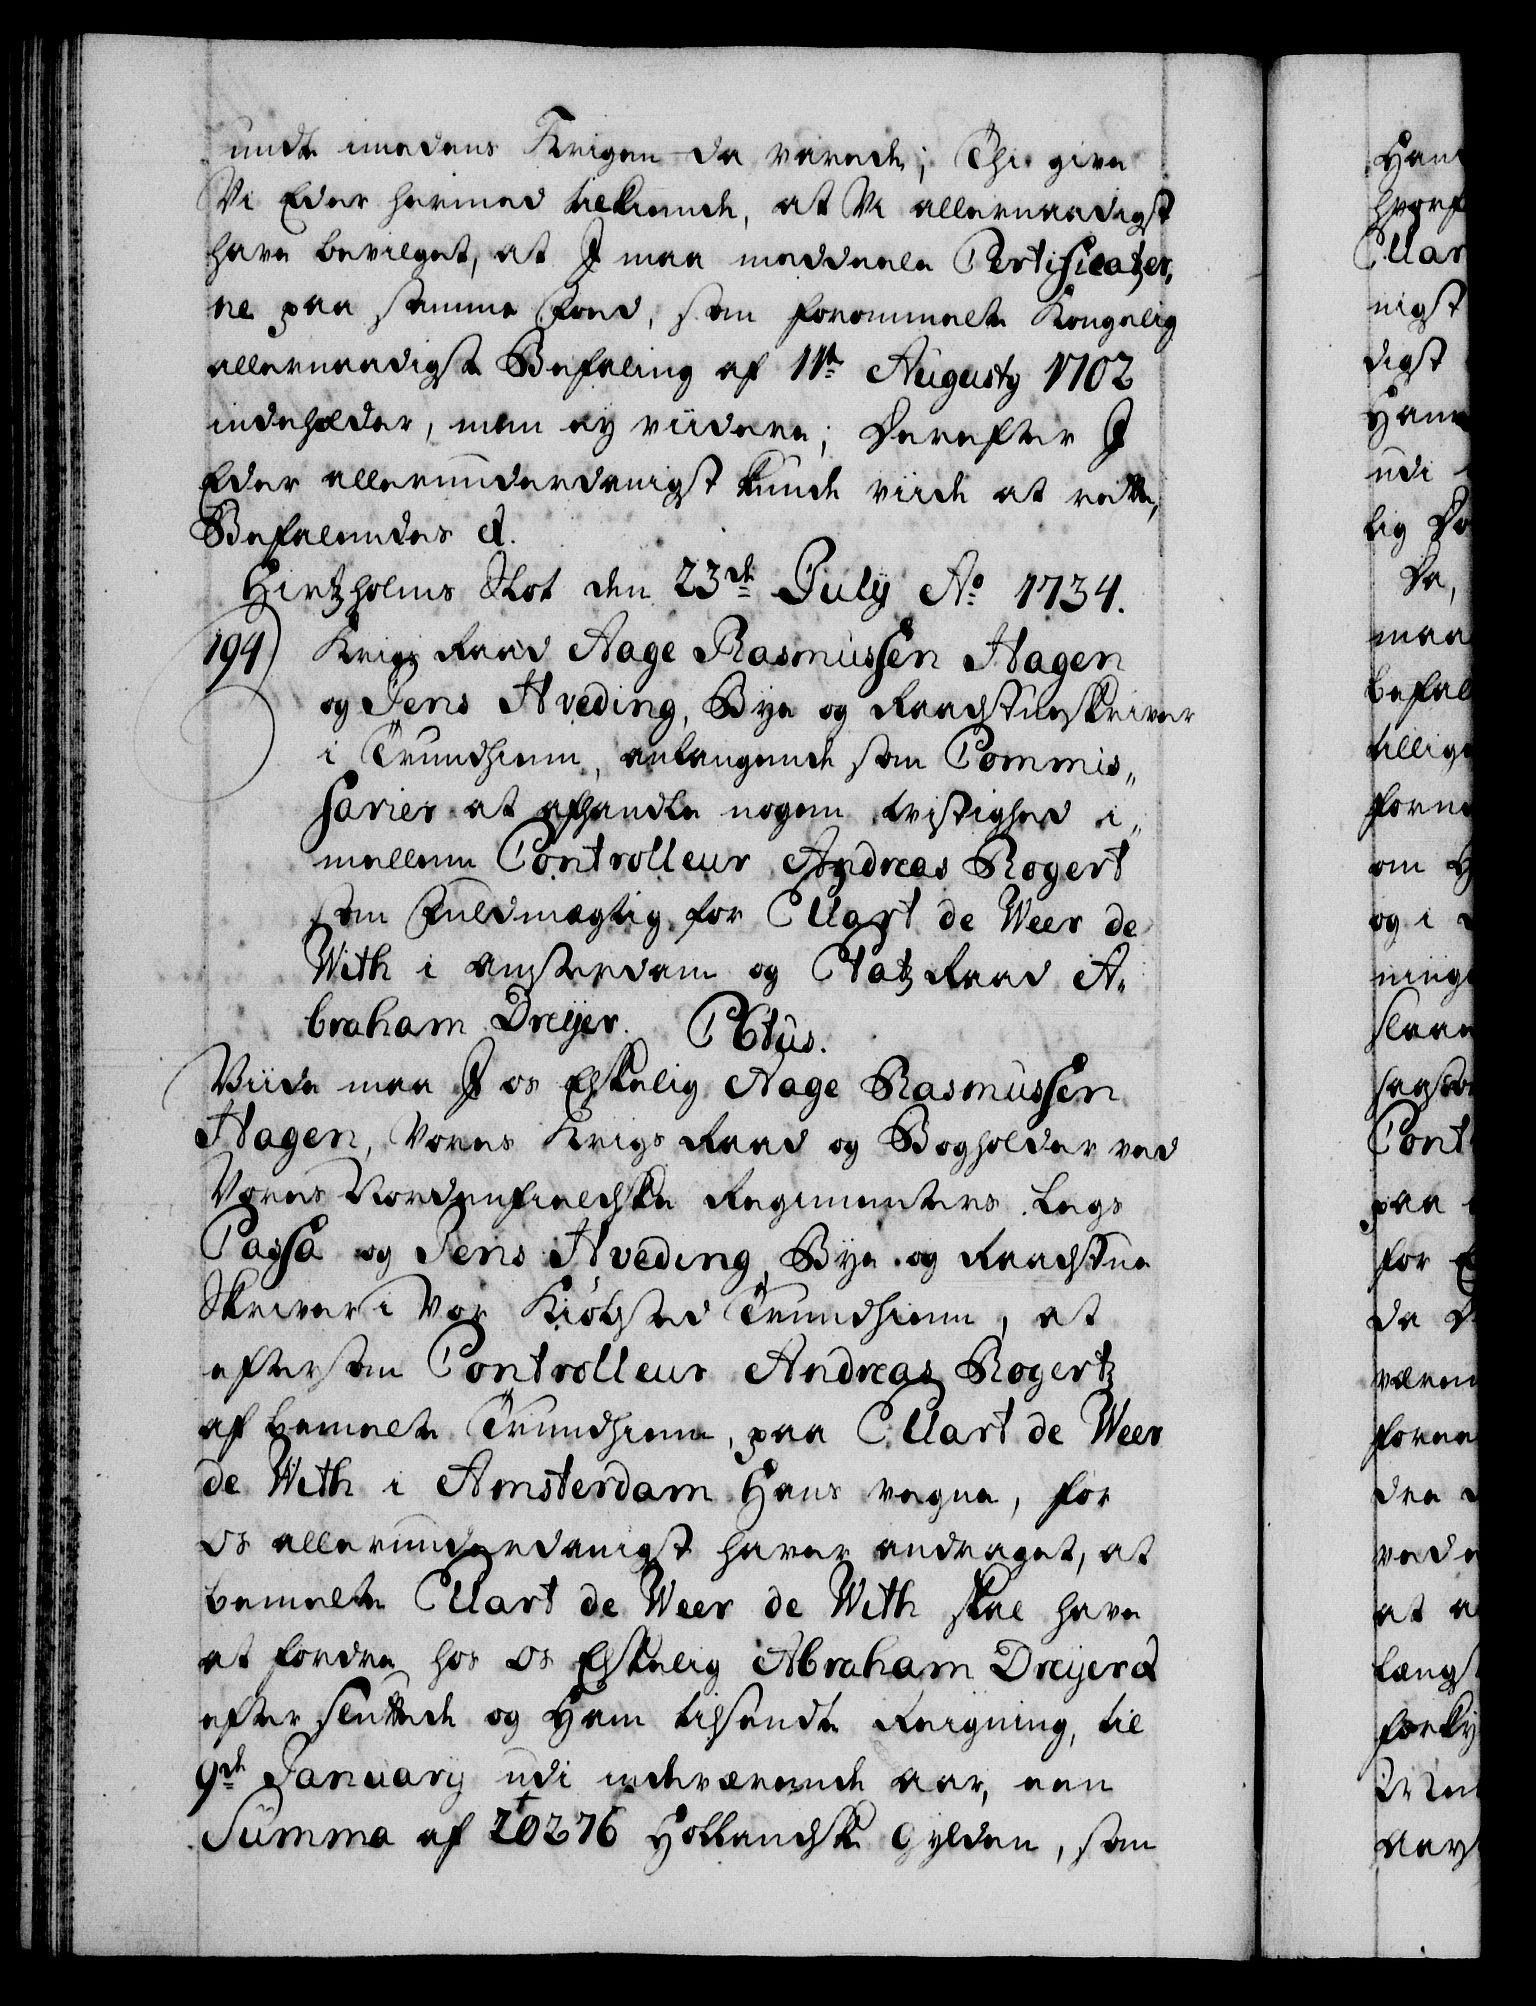 undt imedens Krigen da varede; Thi give
Vi Eder hermed tilkiende, at Vi allernaadigst
have bevilget, at I maa meddeele Certificatzer,
ne paa samme Foed, som forommelte Kongelig
allernaadigst Befaling af 11te Augusty 1702
indeholder, men ey viidere; Derefter I
Eder allerunderdanigst kunde viide at rette,
Befalendes &.
Hirtzholms Slot den 23de July Ao 1734.
194) Krigs Raad Aage Rasmussen Hagen
og Jens Hveding, Bye og Raadstueskriver
i Trundhiem, anlangende som Commis„
sarier at afhandle nogen tvistighed i„
mellem Controlleur Andreas Rogert
som Fuldmægtig for Cllart de Weer de
With i Amsterdam og Etatz Raad A„
braham Dreyer. C6tus.
Viide maa I os Elskelig Aage Rasmussen
Hagen, Vores Krigs Raad og Bogholder ved
Vores Nordenfieldske Regimenters Legs
Cassa og Jens Hveding, Bye og Raadstue
Skriver i Vor Kiøbsted Trundhiem, at
eftersom Controlleur Andreas Rogertz
af bemelte Trundhiem, paa Cllart de Weer
de With i Amsterdam Hans vegne, for
os allerunderdanigst haver andraget, at
bemelte Cllart de Weer de With skal have
at fordre hos os Elskelig Abraham Dreyer &
efter sluttede og Ham tilsendte Reigning, til
9de January udi indeværende aar, een
Summa af 20276 Hollandske Gylden, som